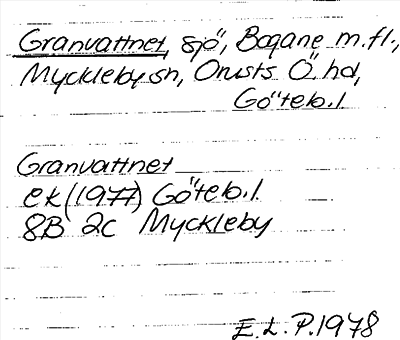 Granvattnet, sjö, Bogane m.fl.,
Myckleby sn, Orusts Ö. hd,
Göteb. l
Granvattnet
ek (1977) Göteb. l.
8B 2c Myckleby
E. L. P. 1978